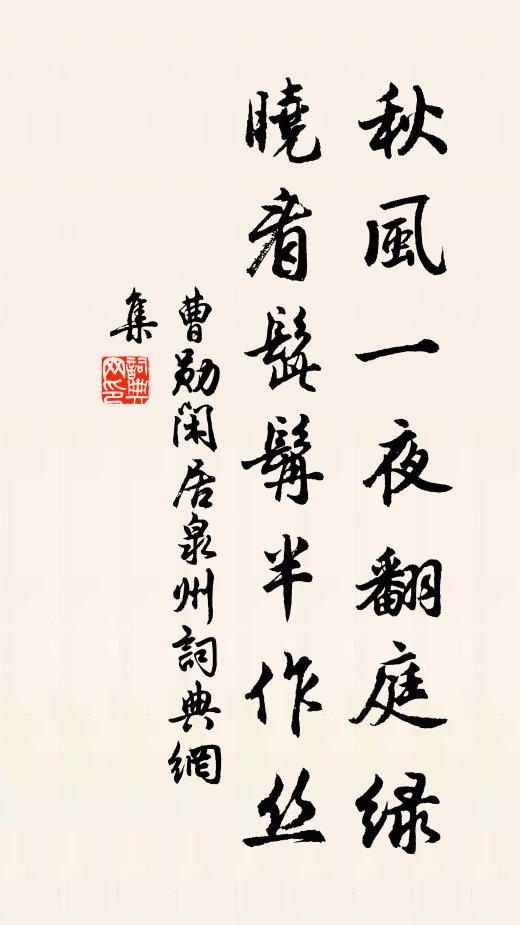 秋風一夜翻庭绿
曉看髭髯半作丝
曹勛閑居泉州詞典網
集
詞典
网印